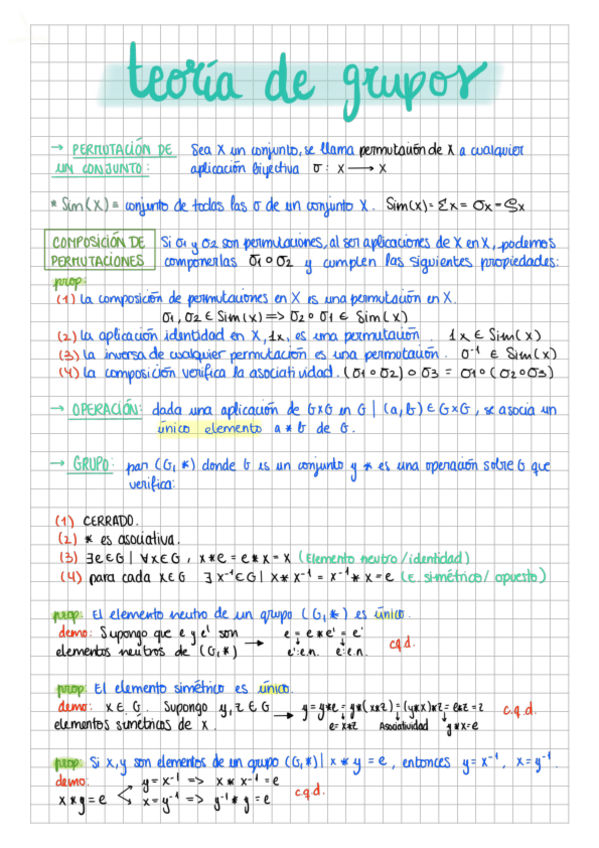 teoría de grupos
→ PERMUTACIÓN DE Sea X un conjunto, se llama permutación de X a cualquier
UN CONJUNTO: aplicación biyectiva σ: X ⟶ X
* Sim(X) = conjunto de todas las σ de un conjunto X. Sim(X) = Σx = σx = Sx
COMPOSICIÓN DE Si σ1 y σ2 son permutaciones, al ser aplicaciones de X en X, podemos
PERMUTACIONES componerlas σ1 ∘ σ2 y cumplen las siguientes propiedades:
prop:
(1) La composición de permutaciones en X es una permutación en X.
σ1, σ2 ∈ Sim(X) => σ2 ∘ σ1 ∈ Sim(X)
(2) La aplicación identidad en X, 1x, es una permutación 1x ∈ Sim(X)
(3) La inversa de cualquier permutación es una permutación. σ⁻¹ ∈ Sim(X)
(4) La composición verifica la asociatividad. (σ1 ∘ σ2) ∘ σ3 = σ1 ∘ (σ2 ∘ σ3)
→ OPERACIÓN: dada una aplicación de G×G en G | (a,b) ∈ G×G, se asocia un
único elemento a * b de G.
→ GRUPO: par (G, *) donde G es un conjunto y * es una operación sobre G que
verifica:
(1) CERRADO.
(2) * es asociativa.
(3) ∃e∈G | ∀x∈G, x*e = e*x = x (Elemento neutro/identidad)
(4) para cada x∈G ∃ x⁻¹∈G | x * x⁻¹ = x⁻¹ * x = e (e. simétrico/ opuesto)
prop: El elemento neutro de un grupo (G, *) es único.
demo: Supongo que e y e' son → e = e * e' = e'
elementos neutros de (G, *) e':e.n. e:e.n. c.q.d.
prop: El elemento simétrico es único.
demo: x ∈ G. Supongo y, z ∈ G → y = y*e = y*(x*z) = (y*x)*z = e*z = z c.q.d.
elementos simétricos de x. e = x*z Asociatividad y*x=e
prop: Si x,y son elementos de un grupo (G,*) | x * y = e, entonces y = x⁻¹, x = y⁻¹.
demo: y = x⁻¹ => x * x⁻¹ = e
x * y = e x = y⁻¹ => y⁻¹ * y = e c.q.d.